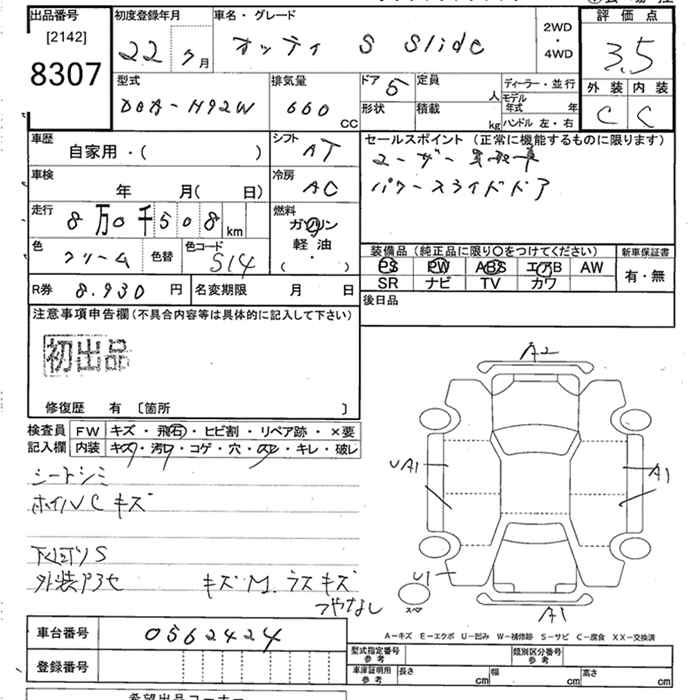 出品番号 [2142] 8307
初度登録年月 22 7月
車名・グレード オッティ S Slide
2WD・4WD
評価点 3.5
外装 C 内装 C
型式 DBA-H92W
排気量 660 CC
ドア 5
形状
定員 人
積載 kg
ディーラー・並行
モデル年式 年
ハンドル 左・右
車歴 自家用・( )
シフト AT
セールスポイント (正常に機能するものに限ります)
ユーザー買取車
パワースライドドア
車検 年 月( 日)
冷房 AC
走行 8万0千508km
燃料 ガソリン 軽油 ( ・ )
色 クリーム 色替
色コード S14
装備品 (純正品に限り○をつけてください)
PS PW ABS エアB AW
SR ナビ TV カワ
新車保証書 有・無
R券 8,930円
名変期限 月 日
後日品
注意事項申告欄 (不具合内容等は具体的に記入して下さい)
初出品
修復歴 有 〔箇所 〕
検査員記入欄
FW キズ・飛石・ヒビ割・リペア跡・×要
内装 キズ・汚レ・コゲ・穴・シミ・キレ・破レ
シートシミ
ホイルC キズ
下廻りS
キズM. ラスキズ
つやなし
A2
UA1
A1
U1
スペ
A1
A-キズ E-エクボ U-凹み W-補修跡 S-サビ C-腐食 XX-交換済
車台番号 0562424
登録番号
型式指定番号 参考
類別区分番号 参考
車庫証明用 参考 長さ cm 幅 cm 高さ cm
希望出品コーナー